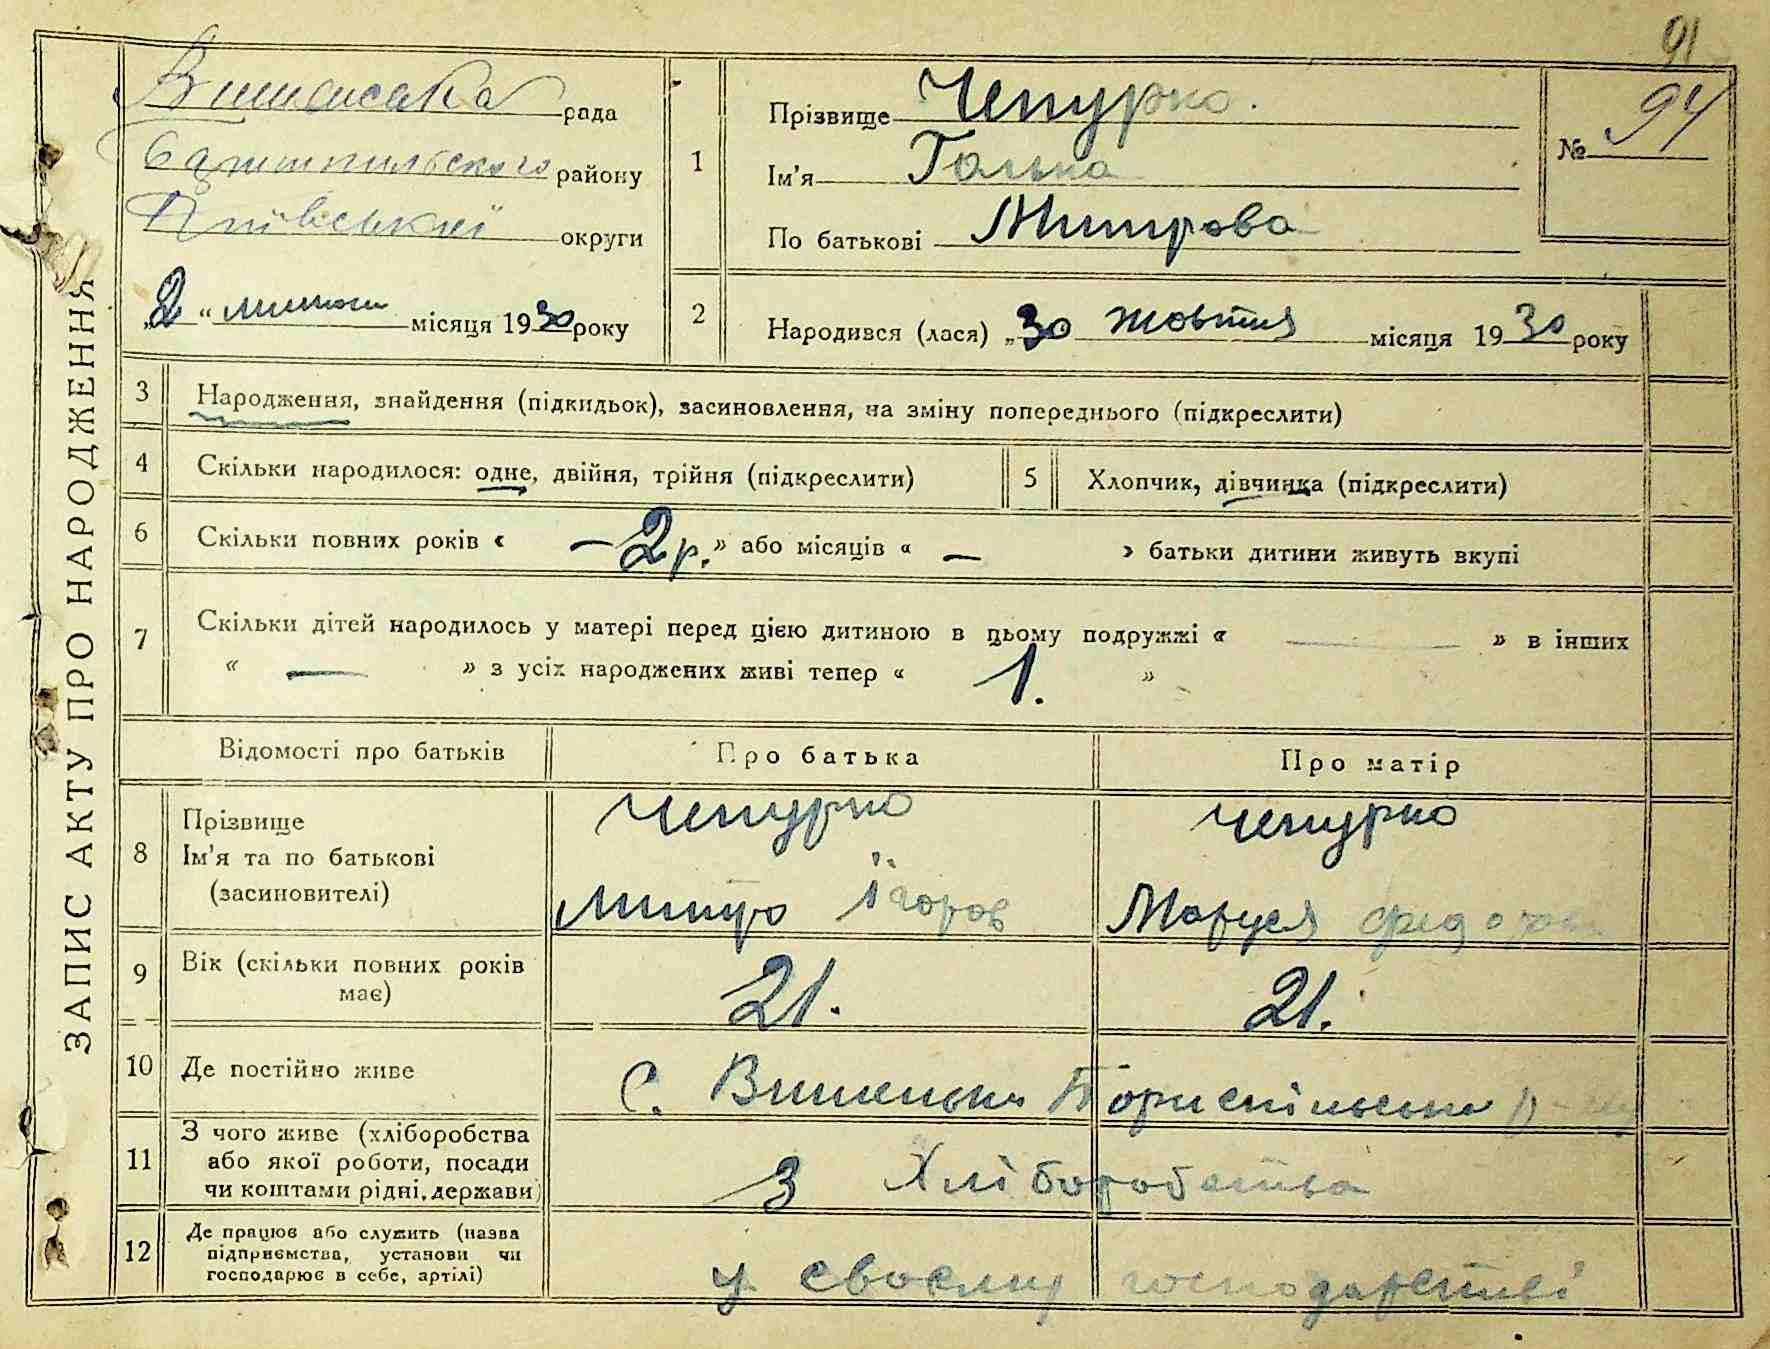 91
ЗАПИС АКТУ ПРО НАРОДЖЕННЯ
рада
району
округи
"2" місяця 1930 року
1
Прізвище Чепурко.
Ім'я Галька
По батькові Митрова
№ 94
2
Народився (лася) "30 жовтня місяця 1930 року
3
Народження, знайдення (підкидьок), засиновлення, на зміну попереднього (підкреслити)
4
Скільки народилося: одне, двійня, трійня (підкреслити)
5
Хлопчик, дівчинка (підкреслити)
6
Скільки повних років « – 2 р. » або місяців « – » батьки дитини живуть вкупі
7
Скільки дітей народилось у матері перед цією дитиною в цьому подружжі « — » в інших
« — » з усіх народжених живі тепер « 1. »
Відомості про батьків
Про батька
Про матір
8
Прізвище
Ім'я та по батькові
(засиновителі)
Чепурко
Митро Ігоров
Чепурко
Маруся
9
Вік (скільки повних років
має)
21.
21.
10
Де постійно живе
с. Вишеньки Бориспільськ
11
З чого живе (хліборобства
або якої роботи, посади
чи коштами рідні, держави)
З Хліборобства
12
Де працює або служить (назва
підприємства, установи чи
господарює в себе, артілі)
у своєму господарстві